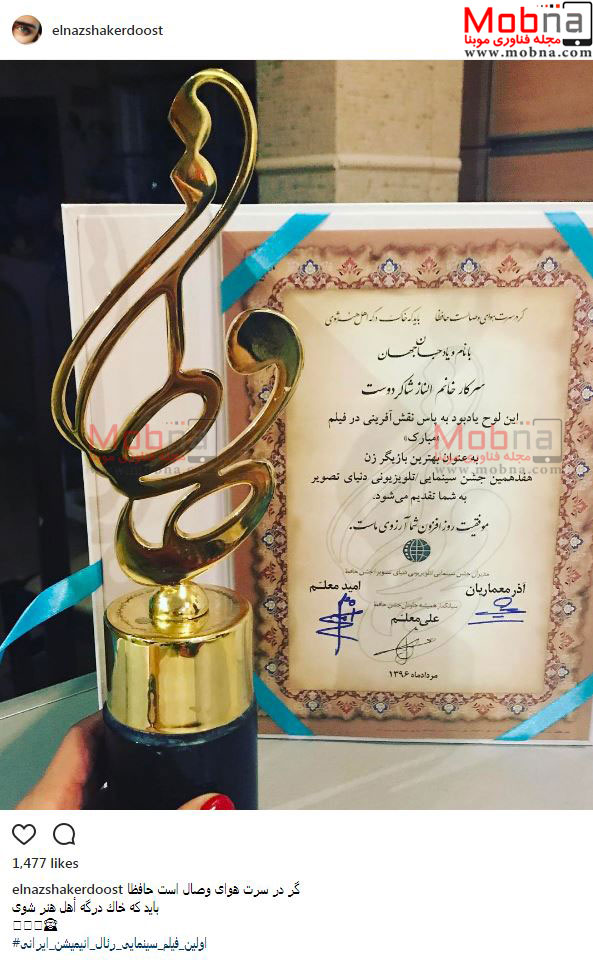 elnazshakerdoost
Mobna
مجله فناوری موبنا
www.mobna.com
گر در سرت هوای وصالست حافظا باید که خاک درگه اهل هنر شوی
با نام و یاد جان جهان
سرکار خانم الناز شاکردوست
این لوح یادبود به پاس نقش‌آفرینی در فیلم
«مبارک»
به عنوان بهترین بازیگر زن
هفدهمین جشن سینمایی/تلویزیونی دنیای تصویر
به شما تقدیم می‌شود.
موفقیت روز افزون شما آرزوی ماست.
مدیران جشن سینمایی/تلویزیونی دنیای تصویر(جشن حافظ)
آذر معماریان
امید معلم
بنیانگذار همیشه جاودان جشن حافظ
علی معلم
مردادماه ۱۳۹۶
Mobna
مجله فناوری موبنا
www.mobna.com
Mobna
مجله فناوری موبنا
www.mobna.com
1,477 likes
elnazshakerdoost گر در سرت هوای وصال است حافظا
باید که خاك درگه أهل هنر شوی
#اولین_فیلم_سینمایی_رئال_انیمیشن_ایرانی